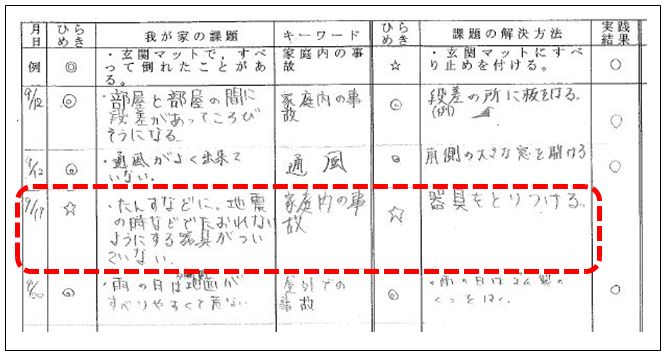 月日 ひらめき 我が家の課題 キーワード ひらめき 課題の解決方法 実践結果
例 ◎ ・玄関マットで，すべって倒れたことがある。 家庭内の事故 ☆ ・玄関マットにすべり止めを付ける。 ○
9/12 ◎ ・部屋と部屋の間に
段差があってころび
そうになる。
家庭内の事
故
◎
段差の所に板をはる。
(例)
○
9/12 ◎ ・通風がよく出来て
いない。
通風
◎
前側の大きな窓を開ける
○
9/19 ☆ ・たんすなどに、地震
の時などでたおれない
ようにする器具がつい
ていない。
家庭内の事
故
☆
器具をとりつける。
9/20 ◎ ・雨の日は地面が
すべりやすくて危ない
屋外での
事故
◎
くつをはく。
○